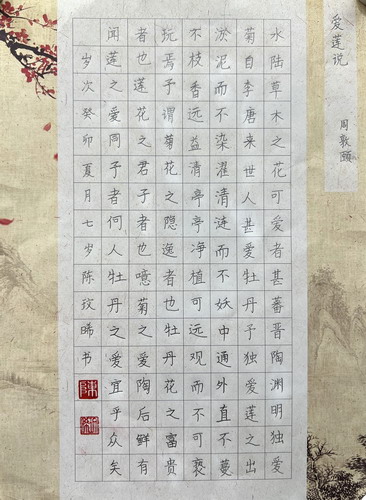 爱莲说
周敦颐
水陆草木之花可爱者甚蕃晋陶渊明独爱
菊自李唐来世人甚爱牡丹予独爱莲之出
淤泥而不染濯清涟而不妖中通外直不蔓
不枝香远益清亭亭净植可远观而不可亵
玩焉予谓菊花之隐逸者也牡丹花之富贵
者也莲花之君子者也噫菊之爱陶后鲜有
闻莲之爱同予者何人牡丹之爱宜乎众矣
岁次癸卯夏月七岁陈玟晞书